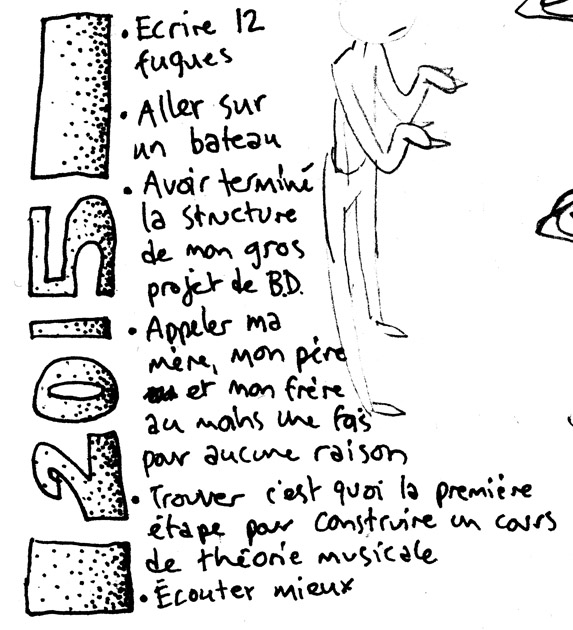 2015
• Ecrire 12
fugues
• Aller sur
un bateau
• Avoir terminé
la structure
de mon gros
projet de B.D.
• Appeler ma
mère, mon père
et mon frère
au moins une fois
pour aucune raison
• Trouver c'est quoi la première
étape pour construire un cours
de théorie musicale
• Écouter mieux